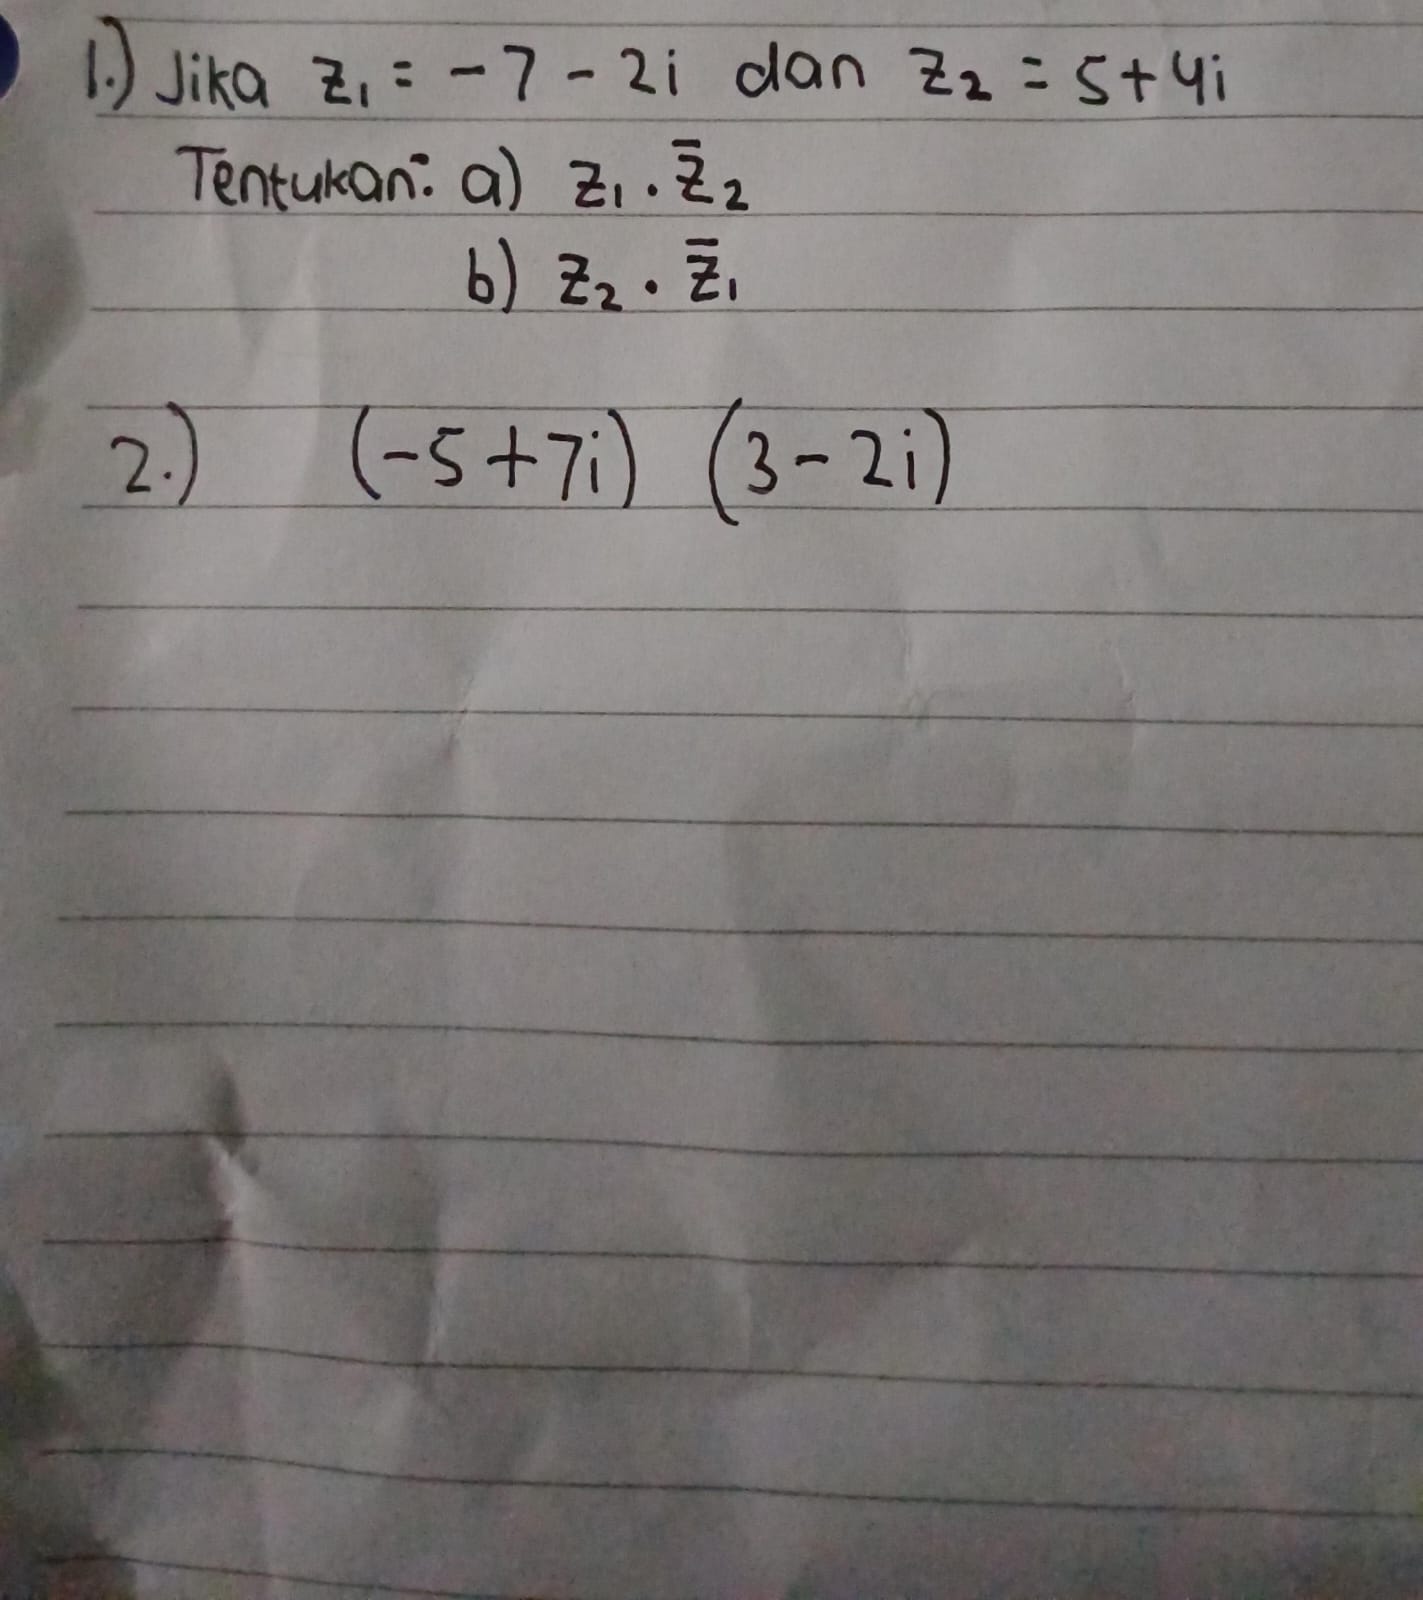 1.) Jika z₁ = -7 - 2i dan z₂ = 5+4i
Tentukan: a) z₁ . z̄₂
b) z₂ . z̄₁
2.) (-5+7i) (3-2i)